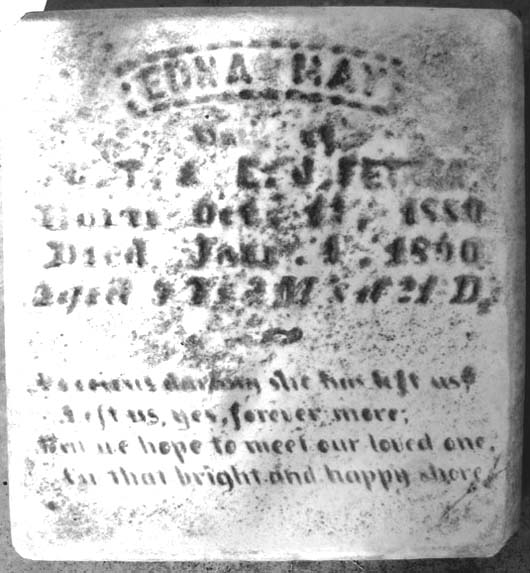 EDNA MAY
Dau. of
T. & E. J.
Born Oct. 11, 1880
Died Jan. 1, 1890
Aged 9 Ys 2 Ms & 21 D.
Precious darling she has left us
Left us, yes, forever more;
But we hope to meet our loved one,
On that bright and happy shore